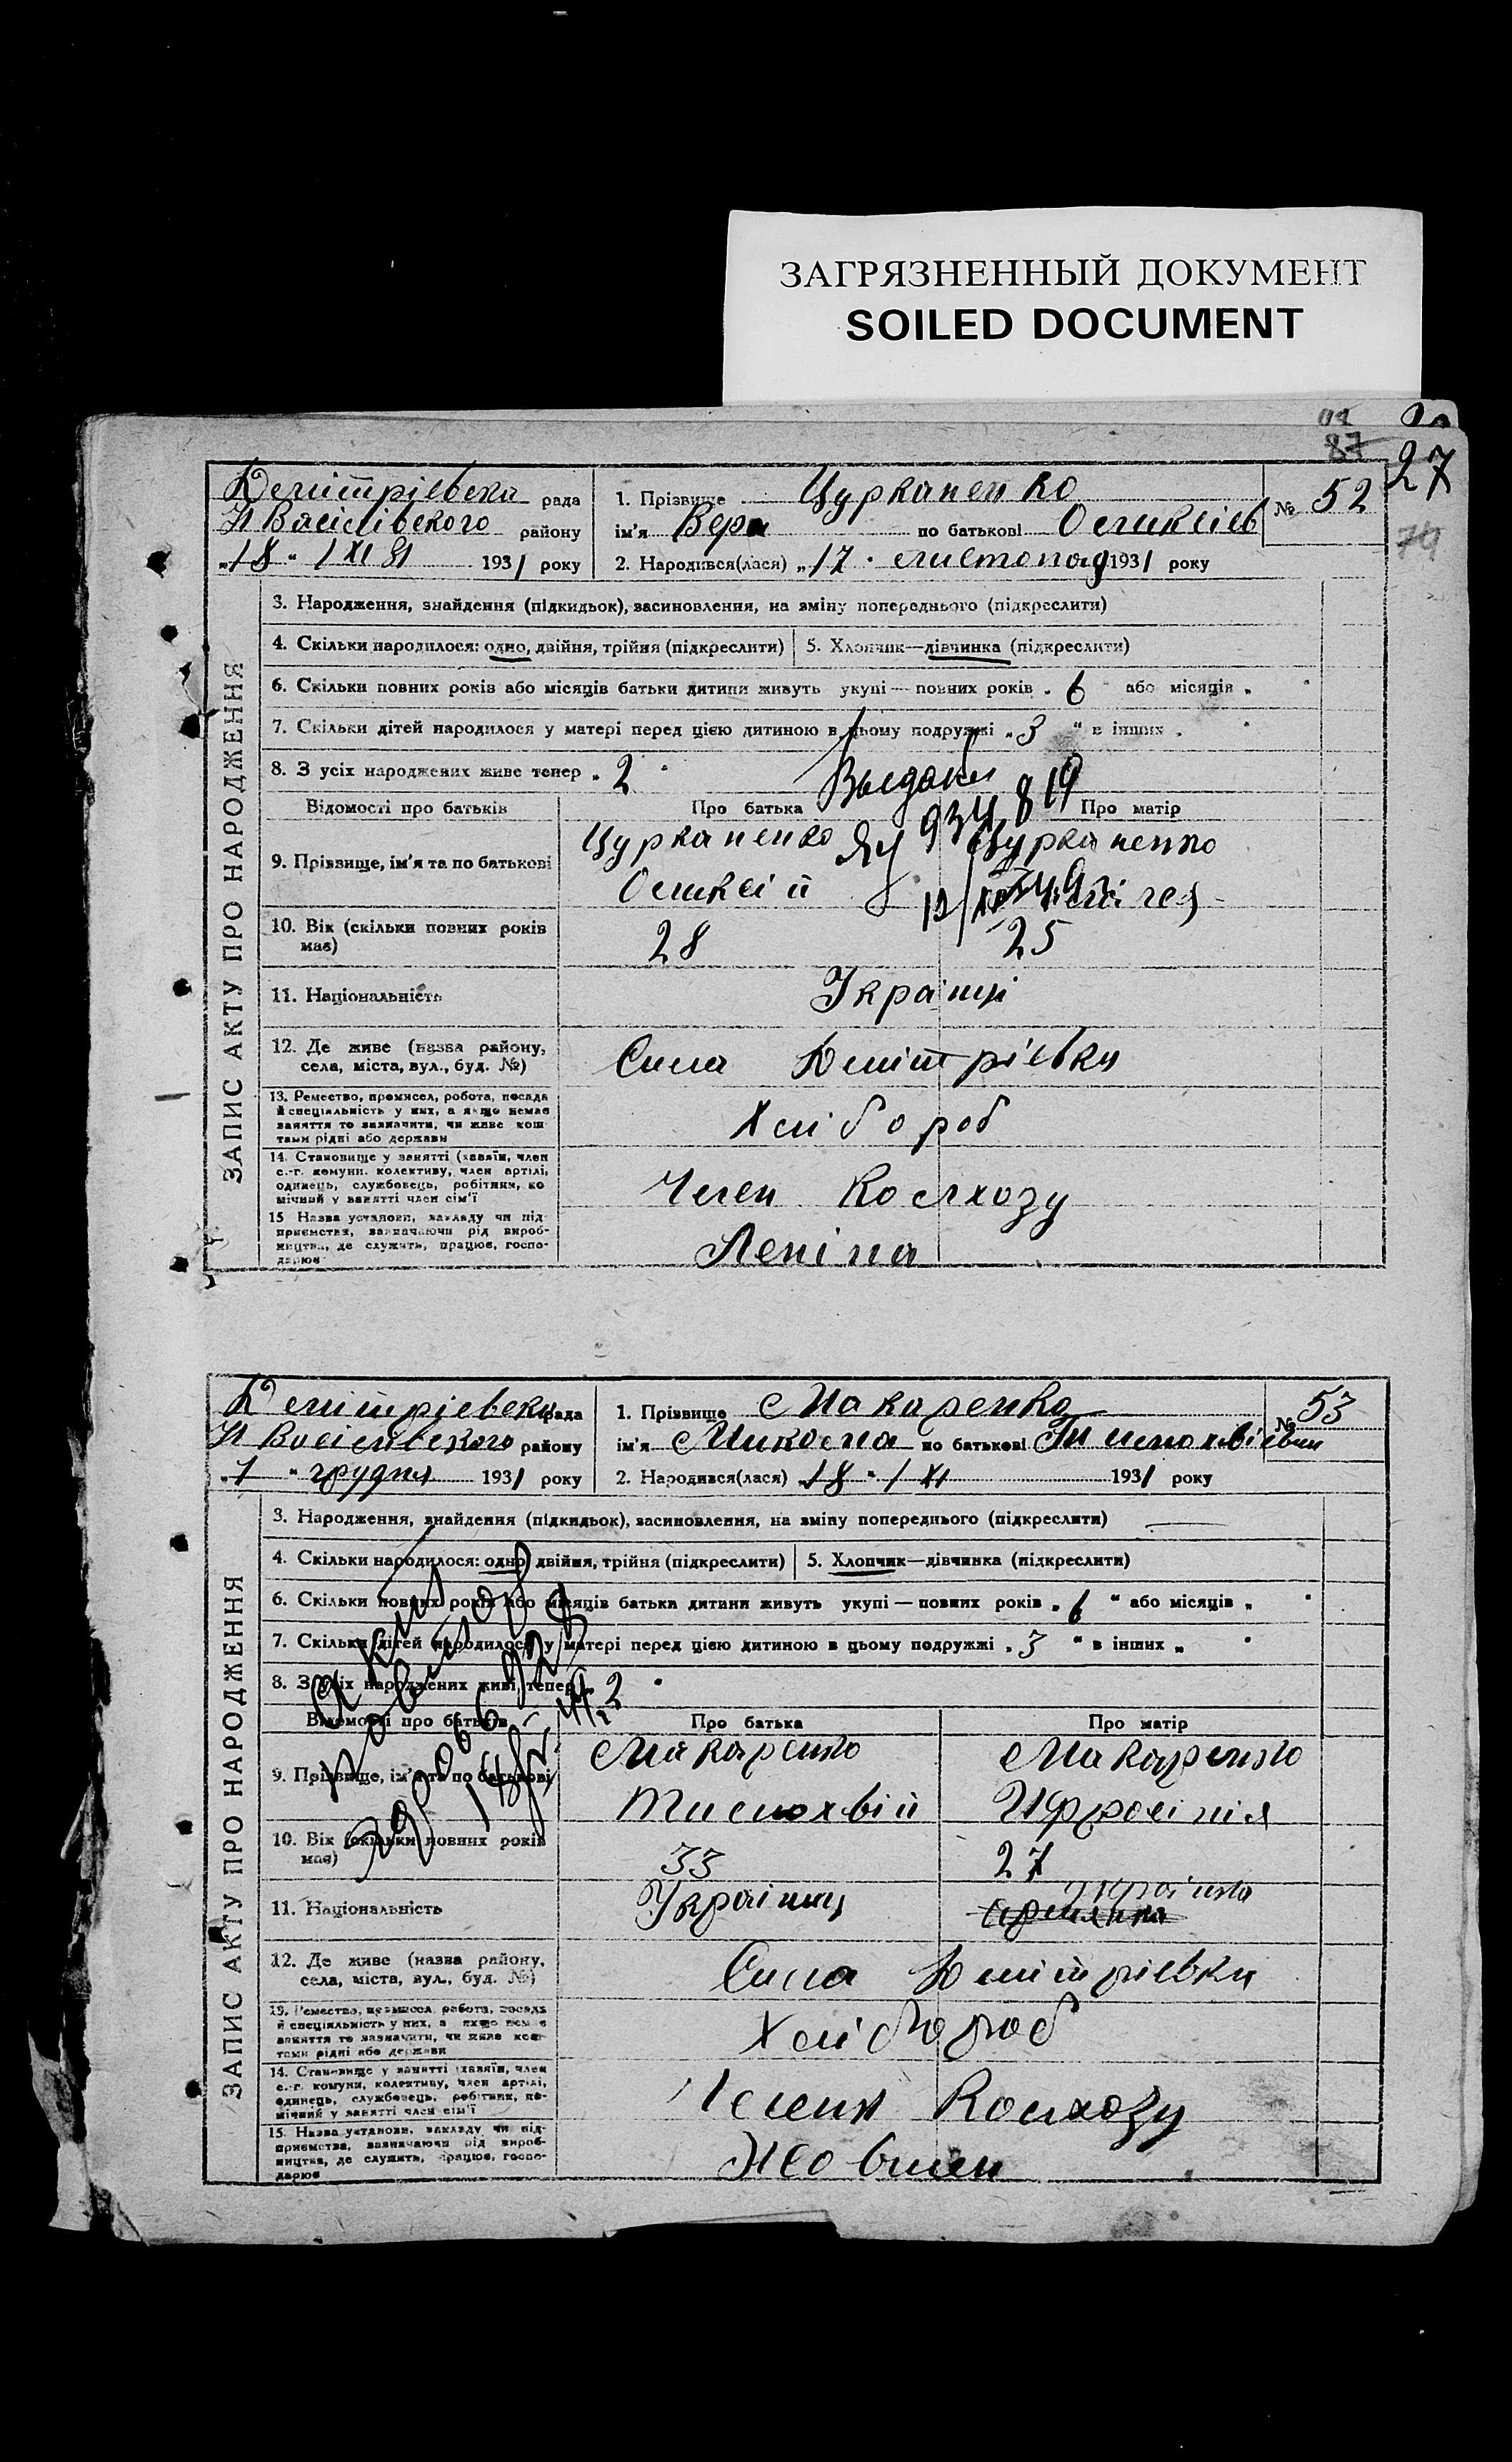 ЗАГРЯЗНЕННЫЙ ДОКУМЕНТ
SOILED DOCUMENT
87 27
79
Дмитріевска рада 1. Прізвище Цурканенко № 52
Н Васілівского району ім'я Вера по батькові
"18" / XI 31 1931 року 2. Народився(лася) "17" листопад 1931 року
ЗАПИС АКТУ ПРО НАРОДЖЕННЯ
3. Народження, знайдення (підкидьок), засиновлення, на зміну попереднього (підкреслити)
4. Скільки народилося: одно, двійня, трійня (підкреслити) 5. Хлопчик—дівчинка (підкреслити)
6. Скільки повних років або місяців батьки дитини живуть укупі — повних років „ 6 " або місяців „ "
7. Скільки дітей народилося у матері перед цією дитиною в цьому подружжі „ 3 " в інших „ "
8. З усіх народжених живе тепер „ 2 "
Відомості про батьків Про батька Про матір
9. Прізвище, ім'я та по батькові Цурканенко Цурканенко
10. Вік (скільки повних років має) 28 25
11. Національність Українці
12. Де живе (назва району, села, міста, вул., буд. №) Сила Дмітріевка
13. Ремество, промисел, робота, посада й спеціяльність у них, а якщо немає заняття то зазначити, чи живе коштами рідні або держави Хлібороб
14. Становище у занятті (хазяїн, член с.-г. комуни, колективу, член артілі, одинець, службовець, робітник, помічний у занятті член сім'ї Член Колхозу
15 Назва установи, закладу чи підприємства, зазначаючи рід виробництва, де служить, працює, господарює Леніна
Дмітріевска рада 1. Прізвище Макаренко № 53
Н Васілівского району ім'я Микола по батькові Тимохвіевич
"1" грудня 1931 року 2. Народився(лася) "18" / XI 1931 року
ЗАПИС АКТУ ПРО НАРОДЖЕННЯ
3. Народження, знайдення (підкидьок), засиновлення, на зміну попереднього (підкреслити)
4. Скільки народилося: одно, двійня, трійня (підкреслити) 5. Хлопчик—дівчинка (підкреслити)
6. Скільки повних років або місяців батьки дитини живуть укупі — повних років „ 6 " або місяців „ "
7. Скільки дітей народилося у матері перед цією дитиною в цьому подружжі „ 3 " в інших „ "
8. З усіх народжених живе тепер „ 2 "
Відомості про батьків Про батька Про матір
9. Прізвище, ім'я та по батькові Макаренко Макаренко
Тимохвій Ифросінія
10. Вік (скільки повних років має) 33 27
11. Національність Українець українка
12. Де живе (назва району, села, міста, вул., буд. №) Сила Дмітріевка
13. Ремество, промисел, робота, посада й спеціяльність у них, а якщо немає заняття то зазначити, чи живе коштами рідні або держави Хлібороб
14. Становище у занятті (хазяїн, член с.-г. комуни, колективу, член артілі, одинець, службовець, робітник, помічний у занятті член сім'ї Член Колхозу
15. Назва установи, закладу чи підприємства, зазначаючи рід виробництва, де служить, працює, господарює Жовтень